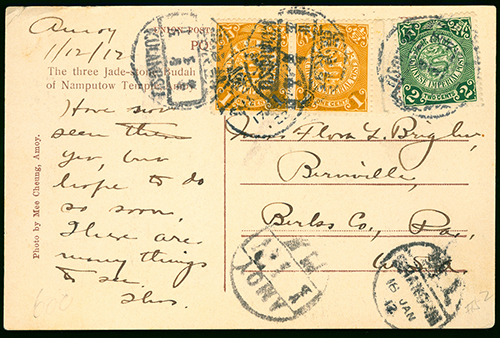 Amoy
11/12/12
UNION POST
The three Jade-stone Budah
of Namputow Temple
Photo by Mee Cheung, Amoy.
Have not
seen them
yet, but
hope to do
so soon.
There are
many things
to see.
Miss Flora L.
Bernville,
Berks Co., Pa.,
U.S.A.
KULANGSU
ONE CENT
1
ONE CENT
1
CHINESE IMPERIAL POST
2
TWO CENTS
2
AMOY
SHANGHAI
16 JAN
12